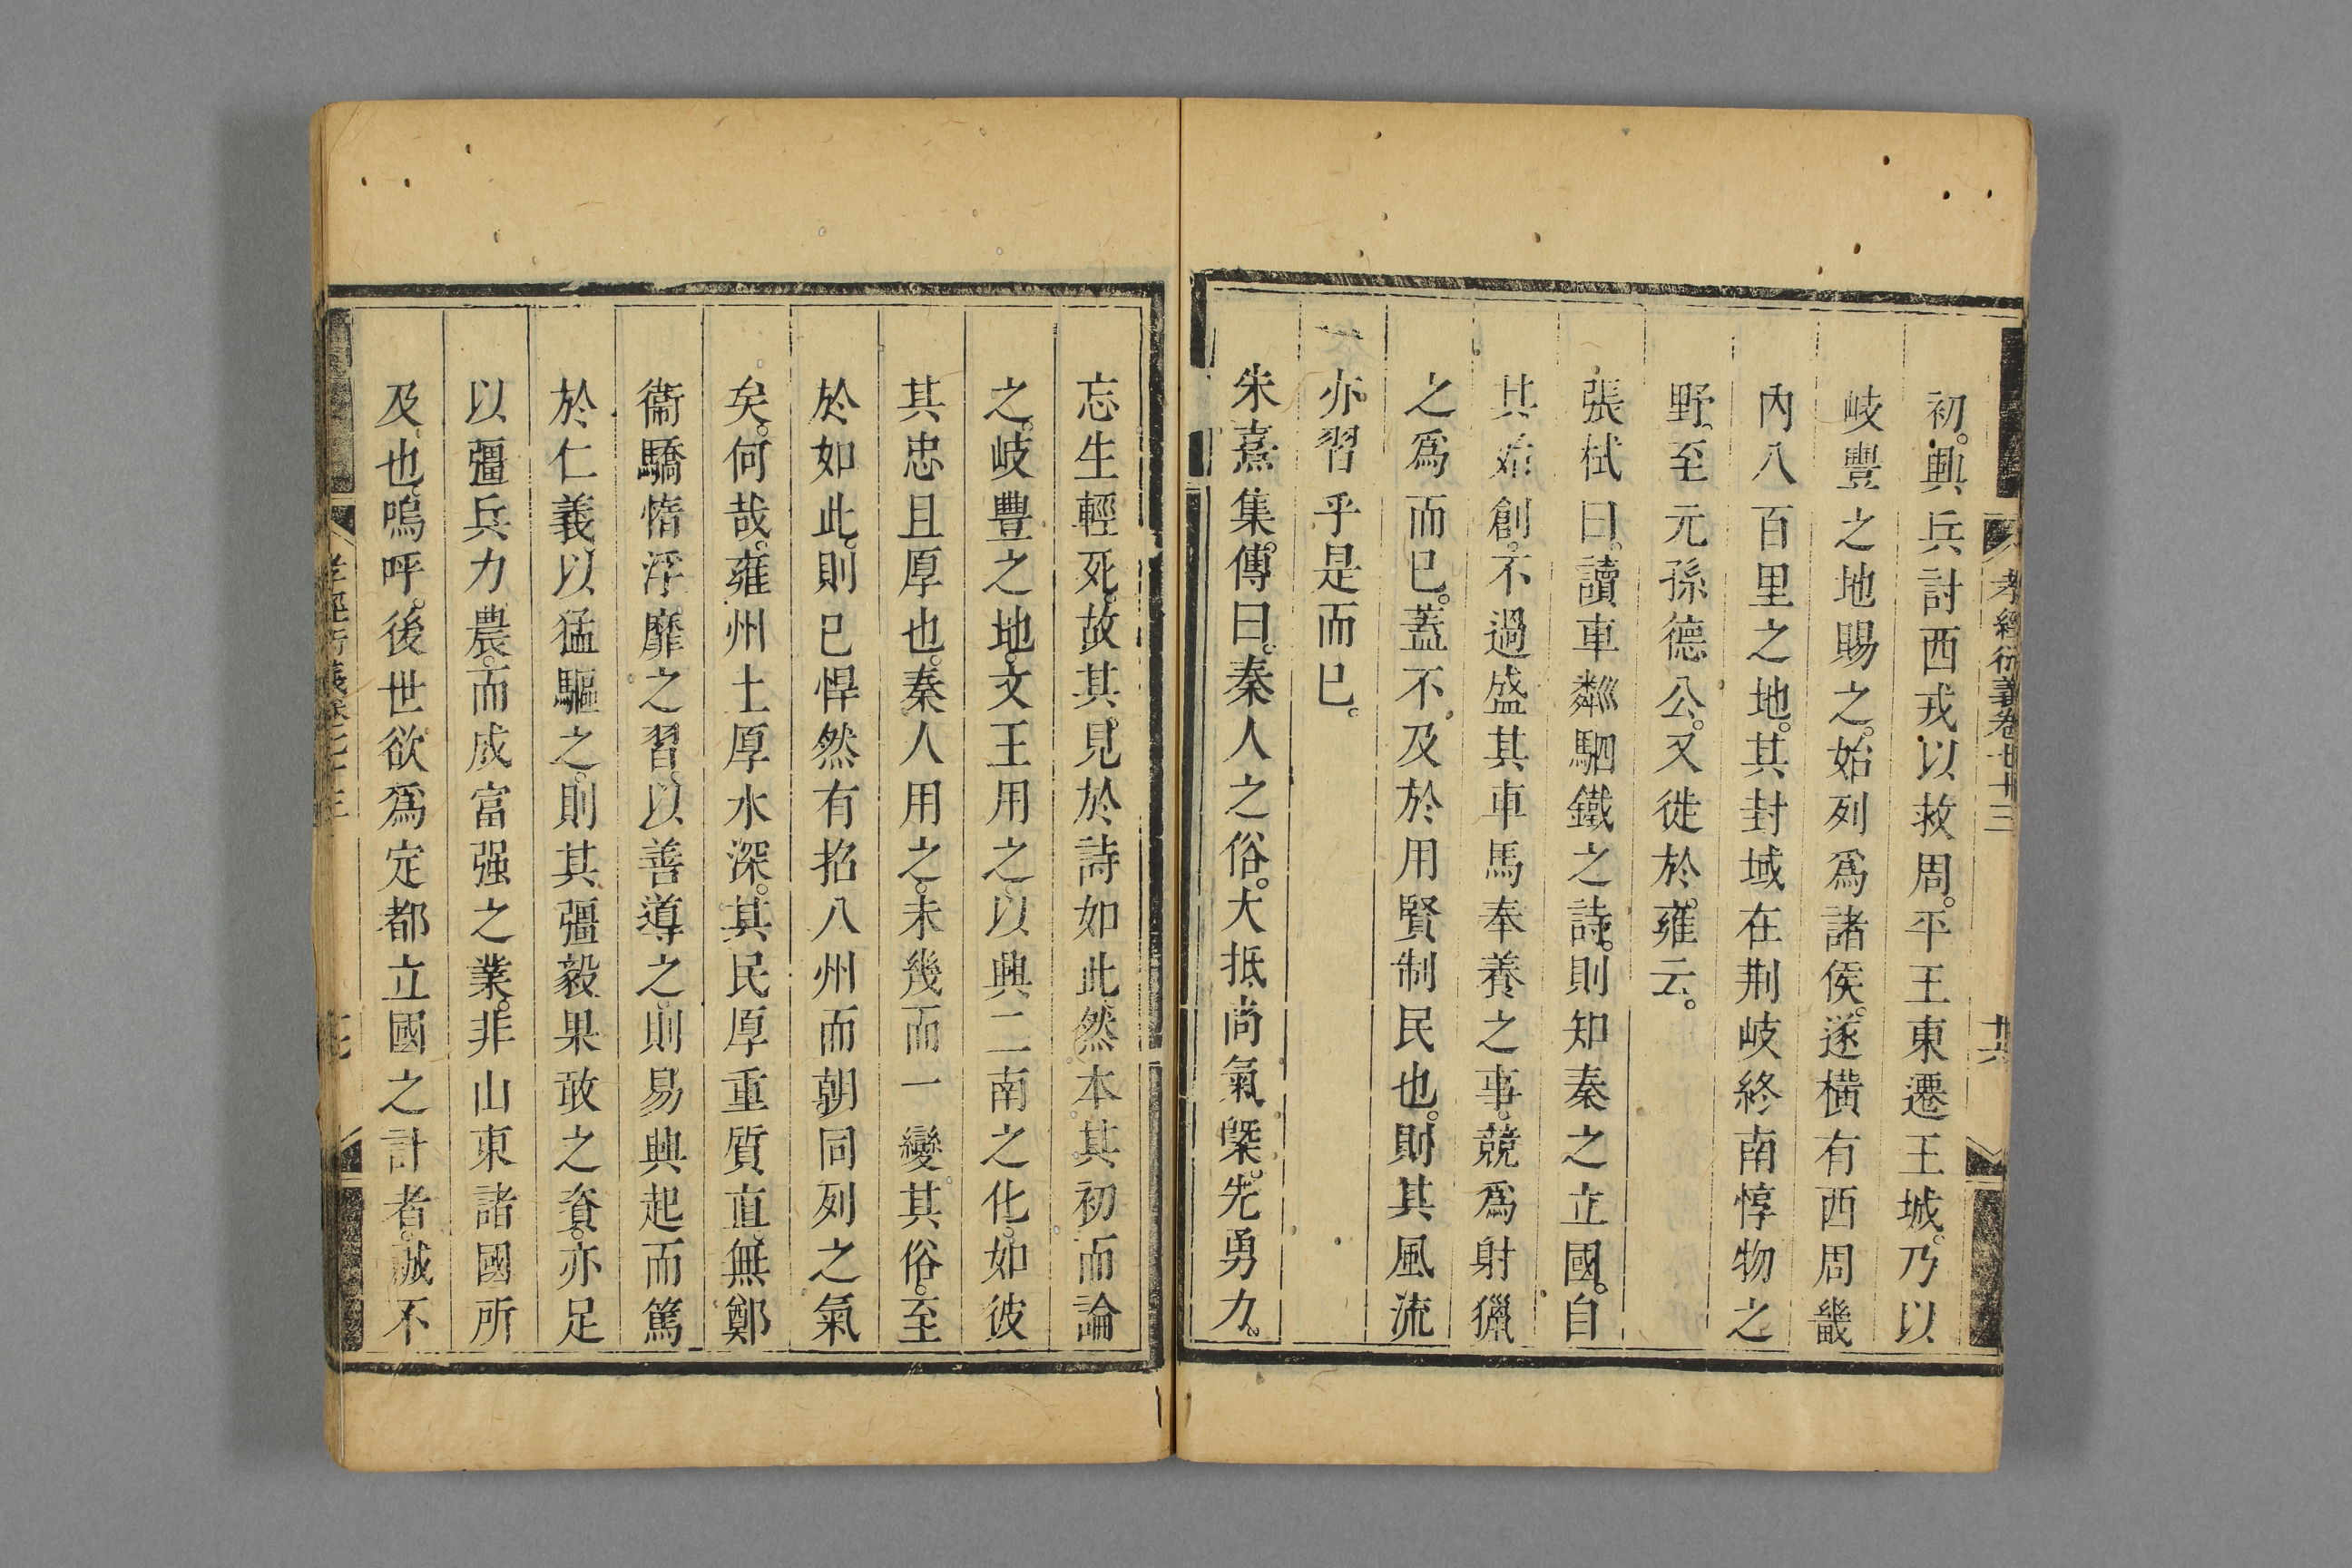 孝經衍義卷七十三
十六
初。興兵討西戎以救周。平王東遷王城。乃以
岐豐之地賜之。始列爲諸侯。遂橫有西周畿
內八百里之地。其封域在荆岐終南惇物之
野。至元孫德公。又徙於雍云。
張栻曰。讀車粼駟鐵之詩。則知秦之立國。自
其始創。不過盛其車馬奉養之事。競爲射獵
之爲而已。蓋不及於用賢制民也。則其風流
亦習乎是而已。
朱熹集傳曰。秦人之俗。大抵尚氣槩。先勇力。
忘生輕死。故其見於詩如此。然本其初而論
之。岐豐之地。文王用之。以興二南之化。如彼
其忠且厚也。秦人用之。未幾而一變其俗。至
於如此。則已悍然有招八州而朝同列之氣
矣。何哉。雍州土厚水深。其民厚重質直。無鄭
衞驕惰浮靡之習。以善導之。則易興起而篤
於仁義。以猛驅之。則其彊毅果敢之資。亦足
以彊兵力農。而成富强之業。非山東諸國所
及也。嗚呼。後世欲爲定都立國之計者。誠不